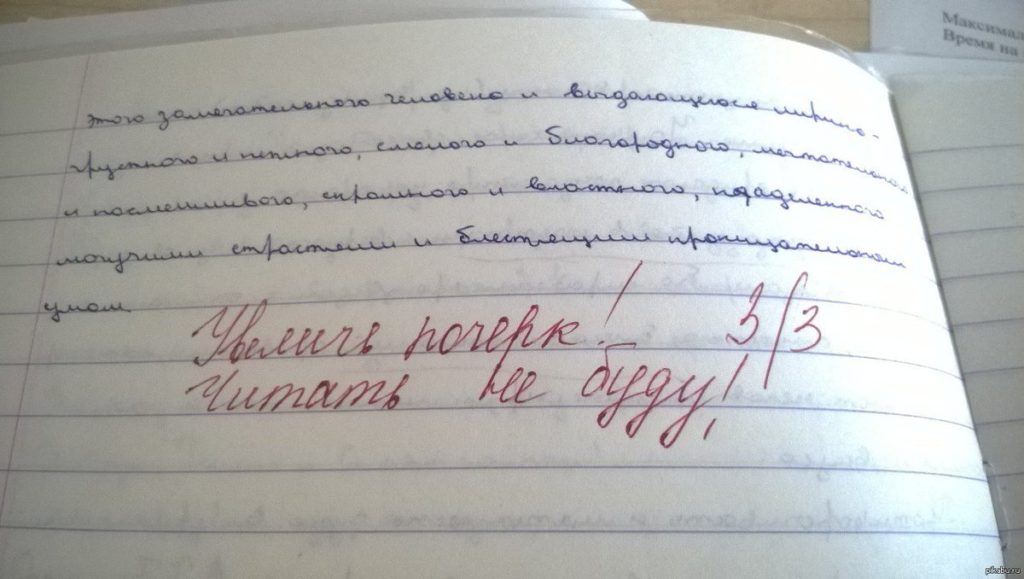 этого замечательного человека и выдающегося лирика -
грустного и нежного, смелого и благородного, мечтательного
и насмешливого, скромного и властного, наделенного
могучими страстями и блестящим проницательным
умом.
Увеличь почерк! 3/3
Читать не буду!
Максимал
Время на
pikabu.ru